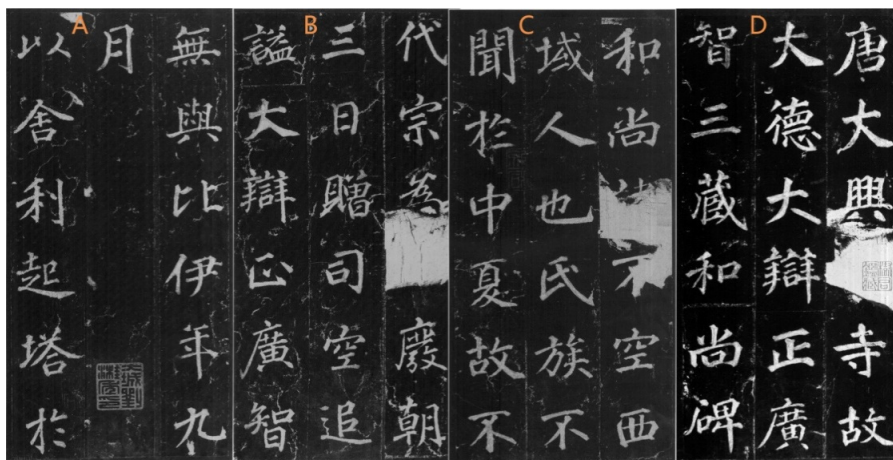 D
唐大興寺故
大德大辯正廣
智三藏和尚碑
C
和尚不空西
域人也氏族不
聞於中夏故不
B
代宗為廢朝
三日贈司空追
諡大辯正廣智
A
無與比伊年九
月
以舍利起塔於